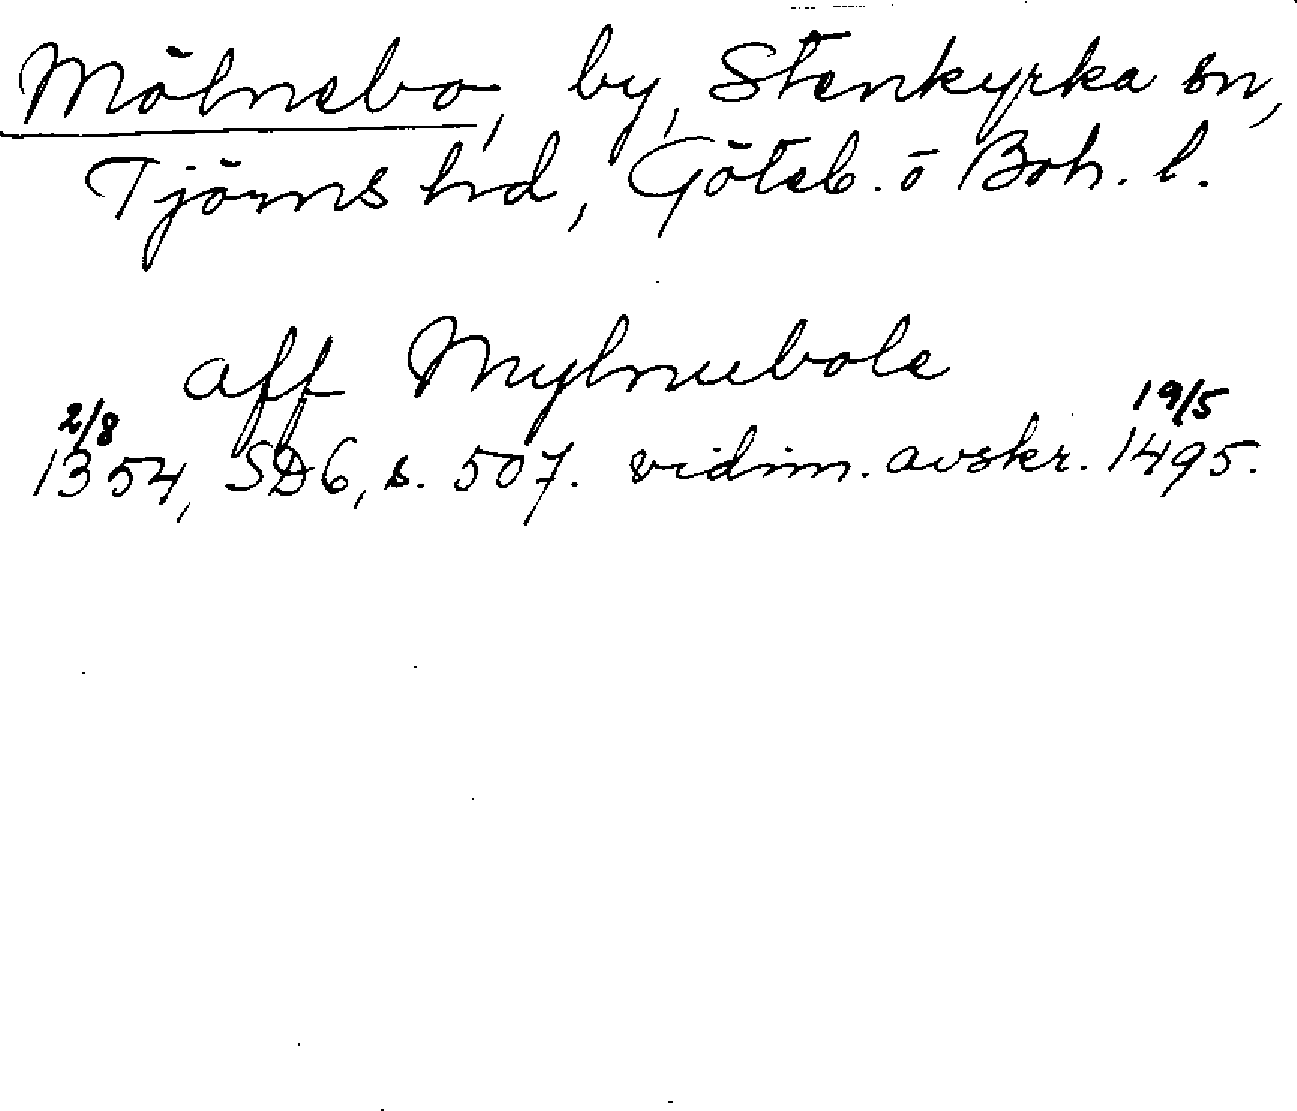 Mölnebo, by, Stenkyrka sn,
Tjörns hd, Göteb. o Boh. l.
aff Mylnubole
2/8 19/5
1354, SD6, s. 507. vidim. avskr. 1495.